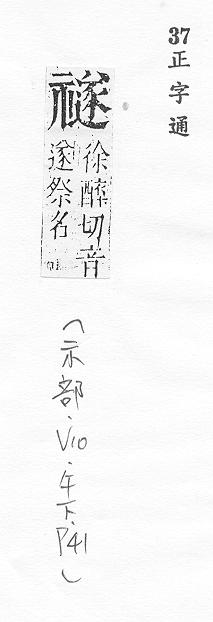 37正字通
禭徐醉切音
遂祭名
（示部．V10．午下．P41）